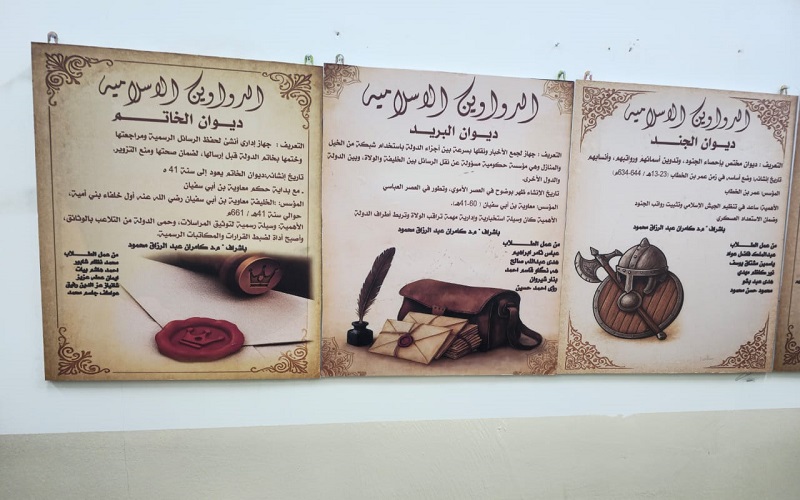 الدواوين الاسلاميه
ديوان الخاتم
التعريف : جهاز إداري أنشئ لحفظ الرسائل الرسمية ومراجعتها
وختمها بخاتم الدولة قبل إرسالها، لضمان صحتها ومنع التزوير.
تاريخ إنشائه:ديوان الخاتم يعود إلى سنة 41 ه
، مع بداية حكم معاوية بن أبي سفيان
المؤسس: :الخليفة معاوية بن أبي سفيان رضي الله عنه، أول خلفاء بني أمية،
حوالي سنة 41هـ / 661م
الأهمية: وسيلة رسمية لتوثيق المراسلات، وحمى الدولة من التلاعب بالوثائق،
وأصبح أداة لضبط القرارات والمكاتبات الرسمية.
باشراف " م.د كامران عبد الرزاق محمود
من عمل الطلاب
احمد هاشم بيات
ايمان علي عزيز
شهباز عز الدين رفيق
عواطف جاسم محمد
الدواوين الاسلاميه
ديوان البريد
التعريف : جهاز لجمع الأخبار ونقلها بسرعة بين أجزاء الدولة باستخدام شبكة من الخيل
والمنازل وهي مؤسسة حكومية مسؤولة عن نقل الرسائل بين الخليفة والولاة، وبين الدولة
والدول الأخرى
تاريخ الإنشاء ظهر بوضوح في العصر الأموي، وتطور في العصر العباسي
المؤسس: معاوية بن أبي سفيان : 60-41هـ،
الأهمية كان وسيلة استخبارية وإدارية مهمة تراقب الولاة وتربط أطراف الدولة
باشراف " م.د كامران عبد الرزاق محمود
من عمل الطلاب
عباس ثامر ابراهيم
هدى عبدالله صالح
هي نكار قاسم احمد
بنار شيروان
رؤى احمد حسين
الدواوين الاسلاميه
ديوان الجند
التعريف : ديوان مختص بإحصاء الجنود، وتدوين أسمائهم ورواتبهم، وأنسابهم
تاريخ إنشائه: وضع أساسه في زمن عمر بن الخطاب (13-23هـ / 634-644م)
المؤسس: عمر بن الخطاب
الأهمية: ساعد في تنظيم الجيش الإسلامي وتثبيت رواتب الجنود
وضمان الاستعداد العسكري
باشراف " م.د كامران عبد الرزاق محمود
من عمل الطلاب
عبدالملك فاضل عواد
ياسمين مشتاق يوسف
نور كاظم مهدي
هدى عبد
محمود حسن محمود